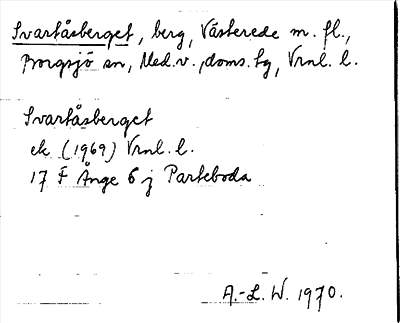 Svartåsberget, berg, Västerede m. fl.,
Borgsjö sn, Med.v., doms. tg, Vrnl. l.
Svartåsberget
ek (1969) Vrnl. l.
17 F Ånge 6 j Parteboda
A.-L. W. 1970.